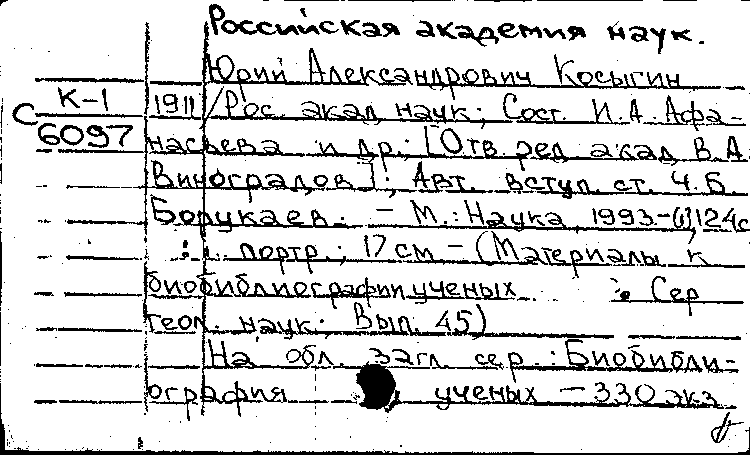 Российская академия наук.
Юрий Александрович Косыгин
К-1 1911 /Рос. акад. наук; Сост. И.А. Афа-
С 6097 насьева и др.; [Отв. ред. акад. В.А.
Виноградов]; Авт. вступ. ст. Ч.Б.
Борукаев. - М.: Наука, 1993.-(1),124с
: портр.; 17 см - (Материалы к
биобиблиографии ученых : Сер
геол. наук; Вып. 45)
На обл. загл. сер.: Биобибли-
ография ученых - 330 экз